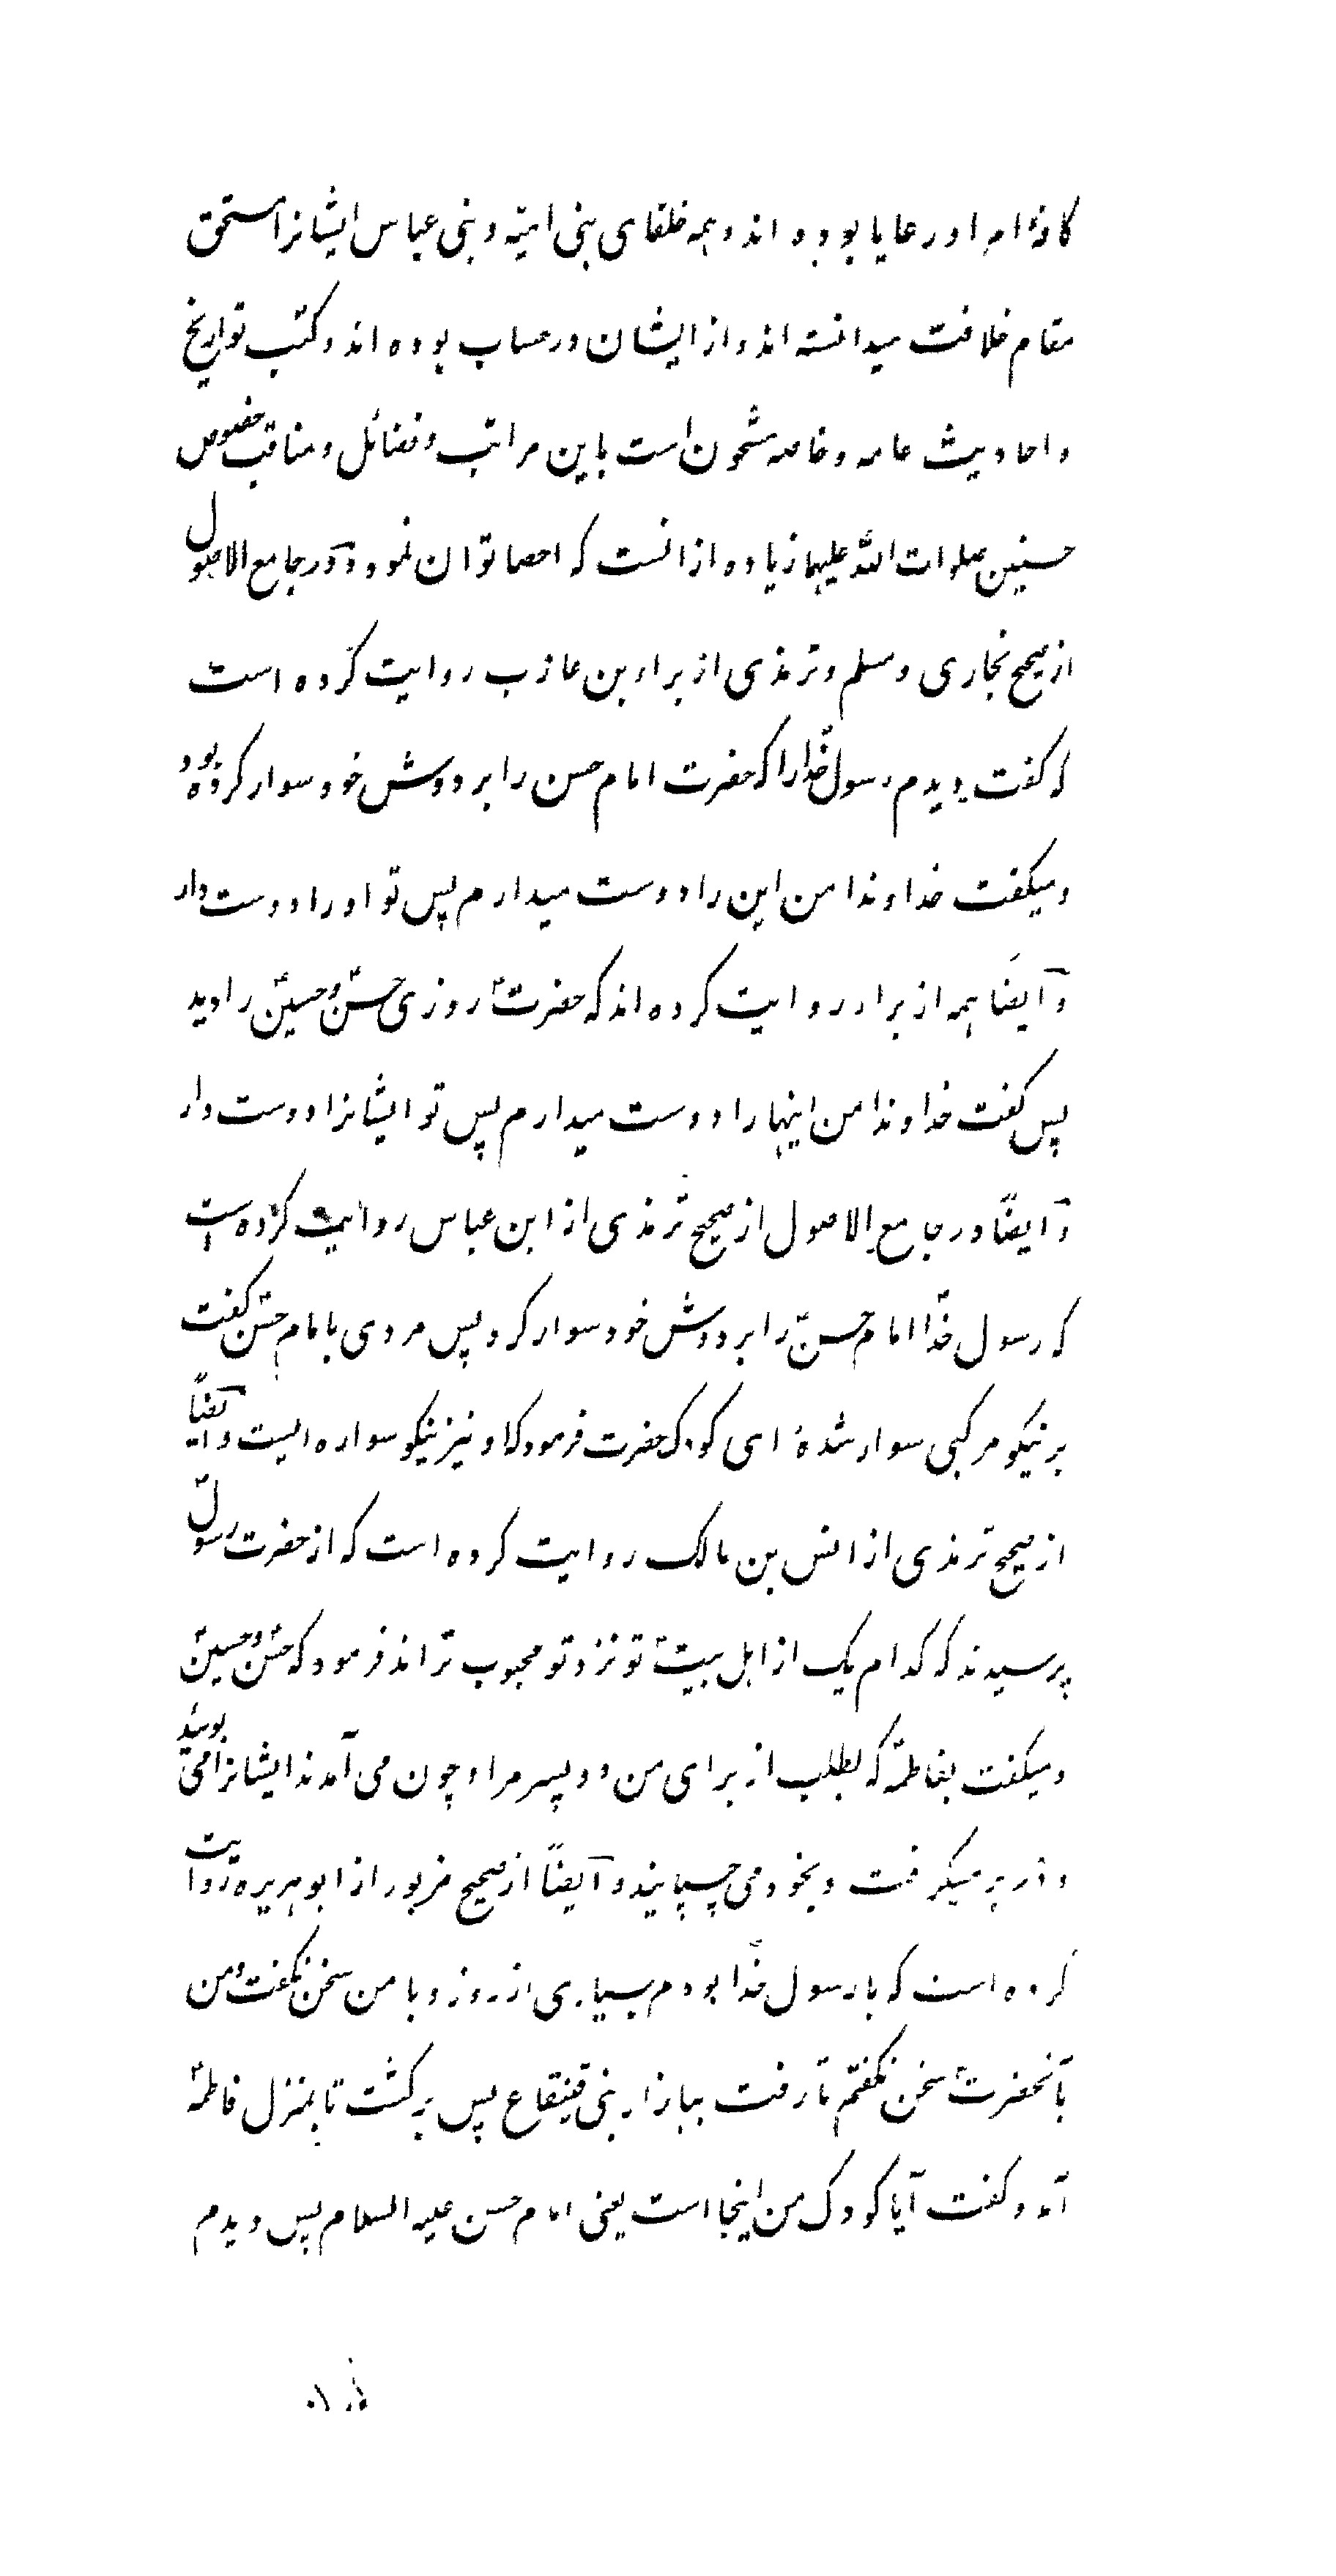 کافهٔ امرا و رعایا بوده اند و همه خلفای بنی امیّه و بنی عباس ایشانرا مستحق
مقام خلافت میدانسته اند و از ایشان در حساب بوده اند و کتب تواریخ
و احادیث عامه و خاصه مشحون است باین مراتب و فضائل و مناقب خصوص
حسنین صلوات اللّه علیهما زیاده از انست که احصا توان نمود و در جامع الاصول
از صحیح بخاری و مسلم و ترمذی از براء بن عازب روایت کرده است
که گفت دیدم رسول خدا را که حضرت امام حسن را بر دوش خود سوار کرده بود
و میگفت خداوندا من این را دوست میدارم پس تو او را دوست دار
و ایضا همه از براء روایت کرده اند که حضرت روزی حسن و حسین را دید
پس گفت خداوندا من اینها را دوست میدارم پس تو ایشانرا دوست دار
و ایضاً در جامع الاصول از صحیح ترمذی از ابن عباس روایت کرده است
که رسول خدا امام حسن را بر دوش خود سوار کرد پس مردی با امام حسن گفت
بر نیکو مرکبی سوار شدهٔ ای کودک حضرت فرمود که او نیز نیکو سواره ایست و ایضاً
از صحیح ترمذی از انس بن مالک روایت کرده است که از حضرت رسول
پرسیدند که کدام یک از اهل بیت تو نزد تو محبوب تر اند فرمود که حسن و حسین
و میگفت بفاطمه که بطلب از برای من دو پسر مرا و چون می آمدند ایشانرا می بوئید
و در بر میگرفت و بخود می چسپانید و ایضاً از صحیح مزبور از ابو هریره روایت
کرده است که با رسول خدا بودم بسیاری از روز و با من سخن نگفت و من
بآنحضرت سخن نگفتم تا رفت ببازار بنی قینقاع پس بر گشت تا بمنزل فاطمه
آمد و گفت آیا کودک من اینجا است یعنی امام حسن علیه السلام پس دیدم